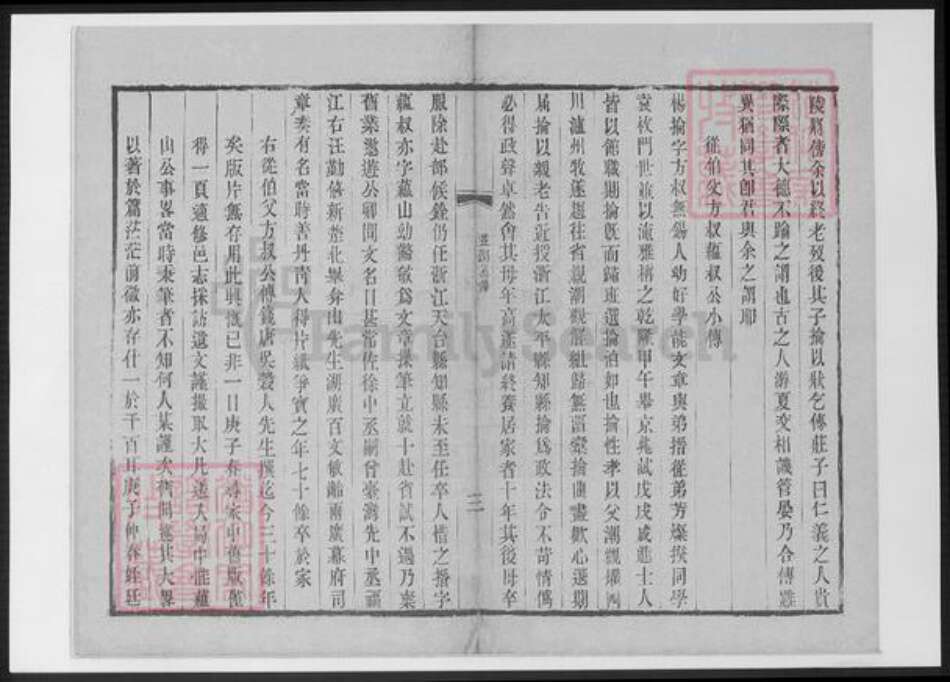 陵爲傳余以終老歿後其子掄以狀乞傳莊子曰仁義之人貴
際際者大德不踰之謂也古之人游夏交相譏管晏乃合傳雖
異猶同其卽君與余之謂耶
從伯父方叔蘊叔公小傳
楊掄字方叔無錫人幼好學能文章與弟搢從弟芳燦揆同學
袁枚門世並以流雅稱之乾隆甲午舉京兆試戊戌成進士人
皆以館職期掄旣而歸班選掄泊如也掄性孝以父潮觀擢四
川瀘州牧遂趨往省親潮觀解組歸無留橐掄曲盡歡心選期
屆掄以親老告近授浙江太平縣知縣掄爲政法令不苛情僞
必得政聲卓然會其母年高遂請終養居家者十年其後母卒
三
服除赴部候銓仍任浙江天台縣知縣未至任卒人惜之搢字
蘊叔亦字蘊山幼警敏爲文章操筆立就十赴省試不遇乃棄
舊業遨遊公卿間文名日甚嘗佐徐中丞嗣曾臺灣先中丞福
江右汪勤僖新楚北畢弇山先生湖廣百文敏齡兩廣幕府司
章奏有名當時善丹靑人得片紙爭寶之年七十餘卒於家
右從伯父方叔公傳錢唐吳穀人先生撰迄今三十餘年
矣版片無存用此興慨已非一日庚子春尋家中舊版僅
得一頁適修邑志採訪遺文謹撮取大凡送入局中惟蘊
山公事畧當時秉筆者不知何人某謹矣齊同遂其大畧
以著於篇茫茫前徽亦存什一於千百耳庚子仲春姪廷